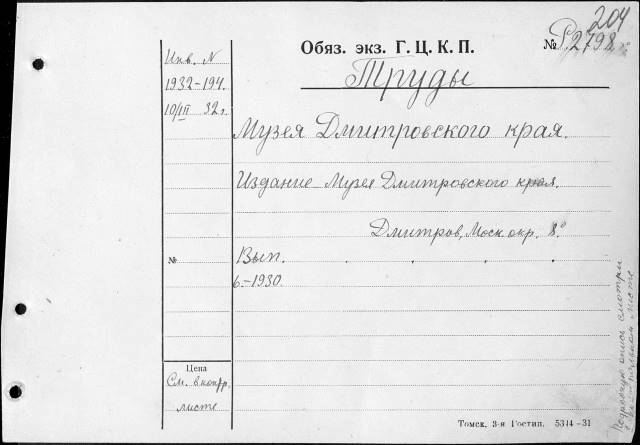 204
Обяз. экз. Г. Ц. К. П. № Р2798
Инв. N
1932-194.
10/III 32 г.
Труды
Музея Дмитровского края.
Издание Музея Дмитровского края.
Дмитров, Моск. окр. 8°
№
Вып.
6.-1930.
Цена
См. в контр.
листе
Подробную опись смотри
листе
Томск, 3-я Гостип. 5314-31